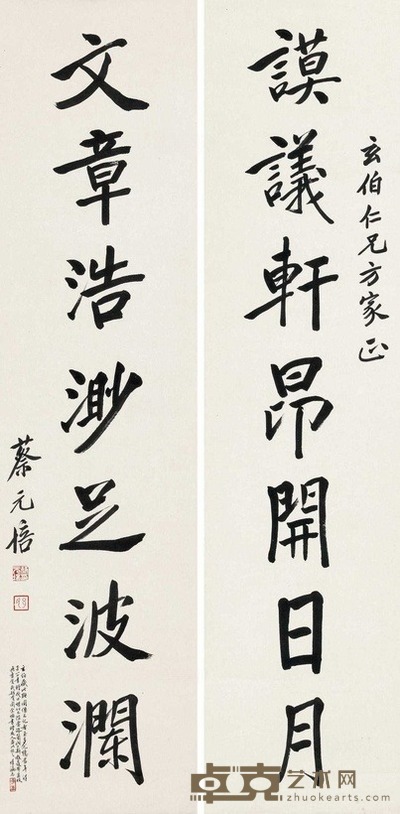 玄伯仁兄方家正
謨議軒昂開日月
文章浩渺足波瀾
蔡元培
卓克艺术网
www.zhuokearts.com